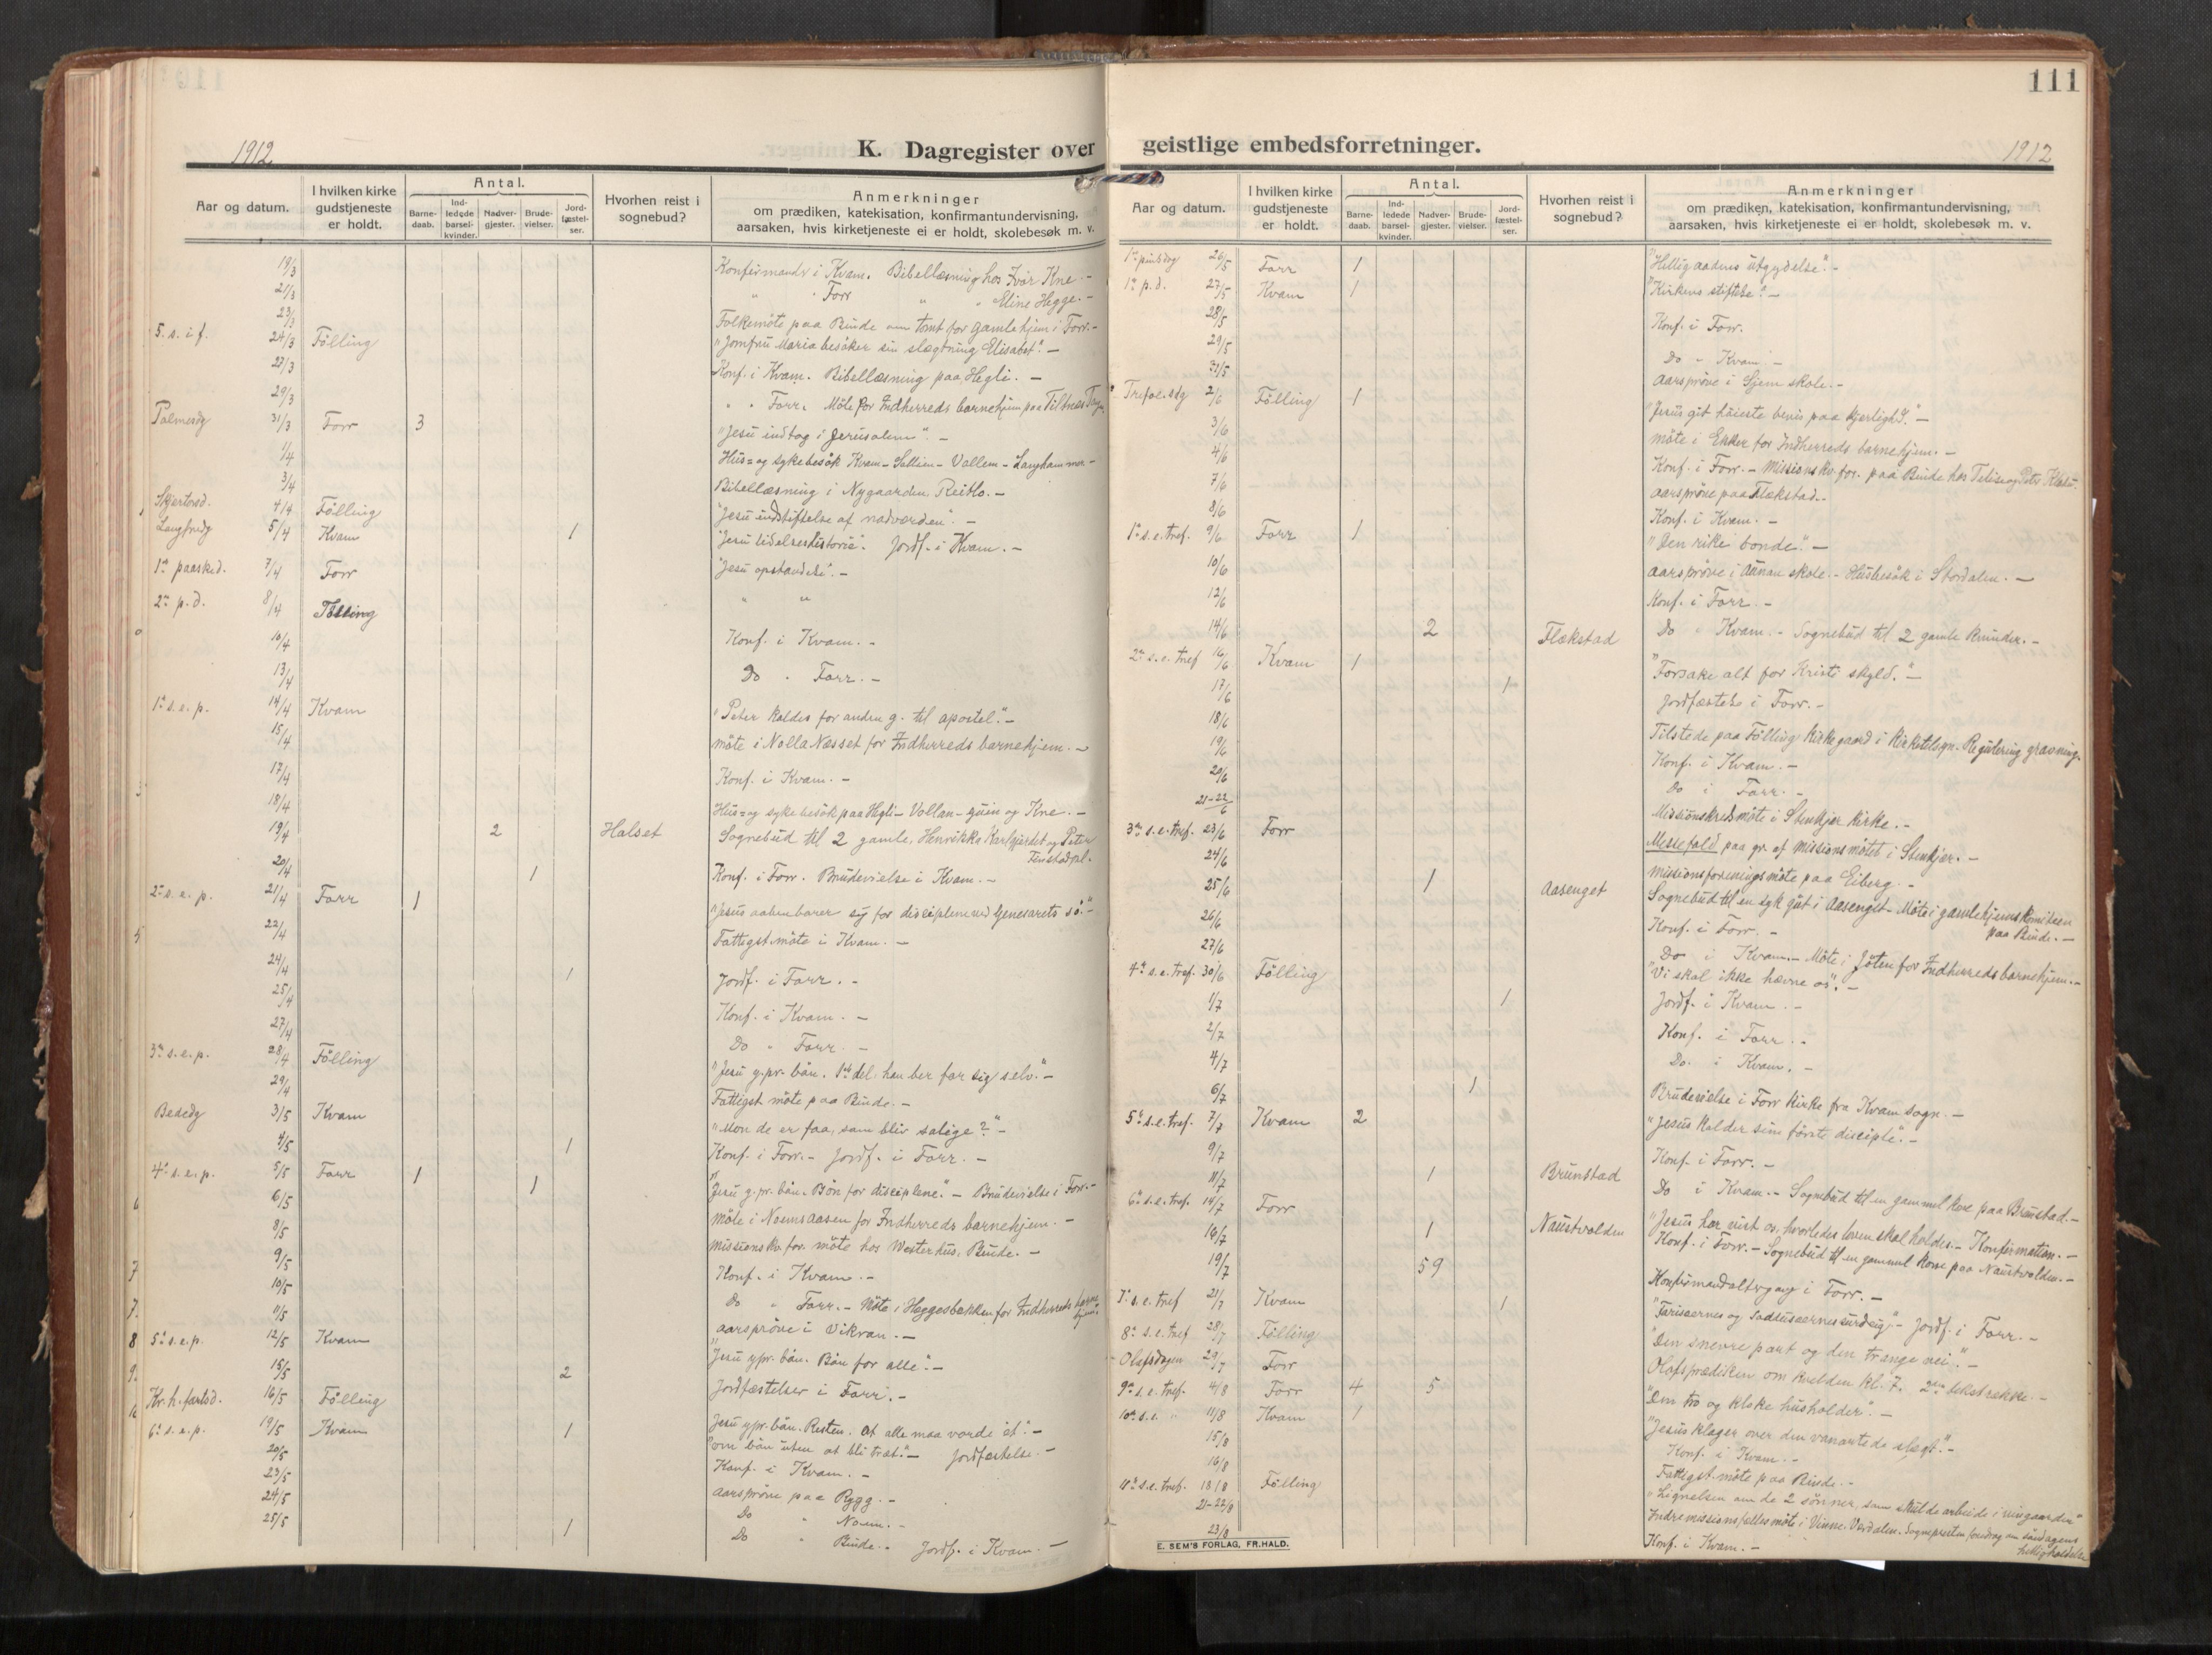 1912
K. Dagregister over
Aar og datum.
I hvilken kirke gudstjeneste er holdt.
Antal.
Barne-daab.
Ind-ledede barsel-kvinder.
Nadver-gjester.
Brude-vielser.
Jord-fæstel-ser.
Hvorhen reist i sognebud?
Anmerkninger
om prædiken, katekisation, konfirmantundervisning,
aarsaken, hvis kirketjeneste ei er holdt, skolebesøk m. v.
19/3 Konfirmander i Kvam. Bibellæsning hos Ivar Kne. -
21/3 " " Forr " " Eline Hegge. -
23/3 Folkemöte paa Binde om tomt for gamlehjem i Forr. -
5. s. i f. 24/3 Fölling "Jomfru Maria besöker sin slægtning Elisabet". -
27/3 Konf. i Kvam. Bibellæsning paa Hegli. -
29/3 " " Forr. Möte for Indherreds barnehjem paa Tiltnes
Palmesdg 31/3 Forr 3 "Jesu indtog i Jerusalem". -
1/4 Hus= og sykebesök Kvam - Vollem - Langhammer -
3/4 Bibellæsning i Nygaarden, Reitlo. -
Skjertorsd. 4/4 Fölling "Jesu indstiftelse af nadverden". -
Langfredg 5/4 Kvam 1 "Jesu lidelseshistorie". Jordf. i Kvam. -
1ste paasked. 7/4 Forr "Jesu opstandelse". -
2den p. d. 8/4 Fölling " "
10/4 Konf. i Kvam. -
13/4 Do " Forr. -
1ste s. e. p. 14/4 Kvam "Peter kaldes for anden g. til apostel." -
15/4 möte i Nolla Næsset for Indherreds barnehjem. -
17/4 Konf. i Kvam. -
18/4 Hus= og sykebesök paa Hegli - Vollan - og Kne. -
19/4 2 Halset Sognebud til 2 gamle, Henrikka Karlgjerdet og Peter
Finstadpl.
20/4 1 Konf. i Forr. Brudevielse i Kvam. -
2den s. e. p. 21/4 Forr 1 "Jesus aabenbarer sig for disciplene ved Genesarets sö." -
22/4 Fattigst. möte i Kvam. -
24/4 1 Jordf. i Forr. -
25/4 Konf. i Kvam. -
27/4 Do " Forr. -
3die s. e. p. 28/4 Fölling "Jesu y.pr. bön. 1ste del: han ber for sig selv." -
29/4 Fattigst. möte paa Binde. -
Bededg 3/5 Kvam "Mon de er faa, som bliv salige?" -
4/5 1 Konf. i Forr. - Jordf. i Forr. -
4de s. e. p. 5/5 Forr 1 1 "Jesu y. pr. bön. Bön for disciplene." - Brudevielse i Forr. -
6/5 Möte i Noemsaasen for Indherreds barnehjem. -
8/5 Missionskv. for. möte hos Westerhus, Binde. -
9/5 Konf. i Kvam. -
10/5 Do " Forr. - Möte i Heggesbakken for Indherreds barnehjem.
11/5 Aarspröve i Vikran. -
5te s. e. p. 12/5 Kvam "Jesu ypr. bön. Bön for alle." -
15/5 2 Jordfæstelser i Forr. -
Kr. h. fartsd. 16/5 Fölling Jesu ypr. bön. Resten. At alle maa vorde ét". -
6te s. e. p. 19/5 Kvam 1 "om bön uten at bli træt." - Jordfæstelse. -
20/5 Konf. i Kvam. -
23/5 Aarspröve paa Rygg. -
24/5 Do " Noem. -
25/5 1 Do " Binde. - Jordf. i Kvam. -
111
geistlige embedsforretninger.
1912
Aar og datum.
I hvilken kirke gudstjeneste er holdt.
Antal.
Barne-daab.
Ind-ledede barsel-kvinder.
Nadver-gjester.
Brude-vielser.
Jord-fæstel-ser.
Hvorhen reist i sognebud?
Anmerkninger
om prædiken, katekisation, konfirmantundervisning,
aarsaken, hvis kirketjeneste ei er holdt, skolebesøk m. v.
1ste pinsdg 26/5 Forr 1 "Helligaadens utgydelse". -
p. d. 27/5 Kvam 1 "Kirkens stiftelse". -
28/5 Konf. i Forr.
29/5 Do " Kvam. -
31/5 Aarspröve i Gjem skole. -
Trefol. sdg 2/6 Fölling 1 "Jesus git höieste bevis paa kjerlighed". -
3/6 möte i Ekker for Indherreds barnehjem. -
4/6 Konf. i Forr. - Missionskv. for. paa Binde hos Peter
7/6 Aarspröve paa Flekstad. -
8/6 Konf. i Kvam. -
1ste s. e. tref. 9/6 Forr 1 "Den rike bonde". -
10/6 Aarspröve i Aunan skole. - Husbesök i Stordalen. -
12/6 Konf. i Forr. -
14/6 2 Flekstad Do " Kvam. - Sognebud til 2 gamle kvinder. -
2den s. e. tref 16/6 Kvam 1 "Forsake alt for Kristi skyld." -
17/6 1 Jordfæstelse i Forr. -
18/6 Tilstede paa Fölling kirkegaard i kirketilsyn. Regulering gravning.
19/6 Konf. i Kvam. -
20/6 Do i Forr. -
21-22/6 Missionskredsmöte i Stenkjer kirke. -
3die s. e. tref. 23/6 Forr Messefald paa gr. af missionsmötet i Stenkjer. -
24/6 Missionsforeningsmöte paa Eiberg. -
25/6 1 Aasenget Sognebud til en syk gut i Aasenget - Möte i gamlehjemskomiteen
paa Binde. -
26/6 Konf. i Forr. -
27/6 Do i Kvam. - Möte i Jöten for Indherreds barnehjem. -
4de s. e. tref. 30/6 Fölling "Vi skal ikke hævne os". -
1/7 1 Jordf. i Kvam. -
2/7 Konf. i Forr. -
4/7 Do. i Kvam. -
6/7 1 Brudevielse i Forr kirke fra Kvam sogn. -
5te s. e. tref. 7/7 Kvam 2 "Jesus kalder sine förste disciple". -
9/7 Konf. i Forr. -
11/7 1 Brunstad Do i Kvam. - Sognebud til en gammel kone paa Brunstad. -
6te s. e. tref. 14/7 Forr "Jesus har vist os, hvorledes loven skal holdes. - Konfirmation. -
16/7 1 Naustvolden Konf. i Forr. - Sognebud til en gammel kone paa Naustvolden. -
19/7 59 Konfirmandaltergang i Forr. -
7de s. e. tref 21/7 Kvam 1 "Farisæernes og Saddusæernes surdeig" - Jordf. i Forr. -
8de s. e. tref 28/7 Fölling "Den snevre port og den trange vei". -
Olafsdagen 29/7 Forr Olafsprædiken om kvelden kl. 7. 2den tekstrække. -
9de s. e. tref. 4/8 Forr 4 5 "Den tro og kloke husholder". -
10de s. e. " 11/8 Kvam 1 "Jesus klager over den vanartede slægt." -
15/8 Konf. i Kvam. -
16/8 Fattigst. möte paa Binde. -
11te s. e. tref. 18/8 Fölling "Lignelsen om de 2 sönner, som skulde arbeide i vingaarden"
21-22/8 Indremissionsfellesmöte i Vinne. Verdalen. Sognepresten foredrag om söndagens
helligholdelse
23/8 Konf. i Kvam. -
E. SEM'S FORLAG, FR.HALD.